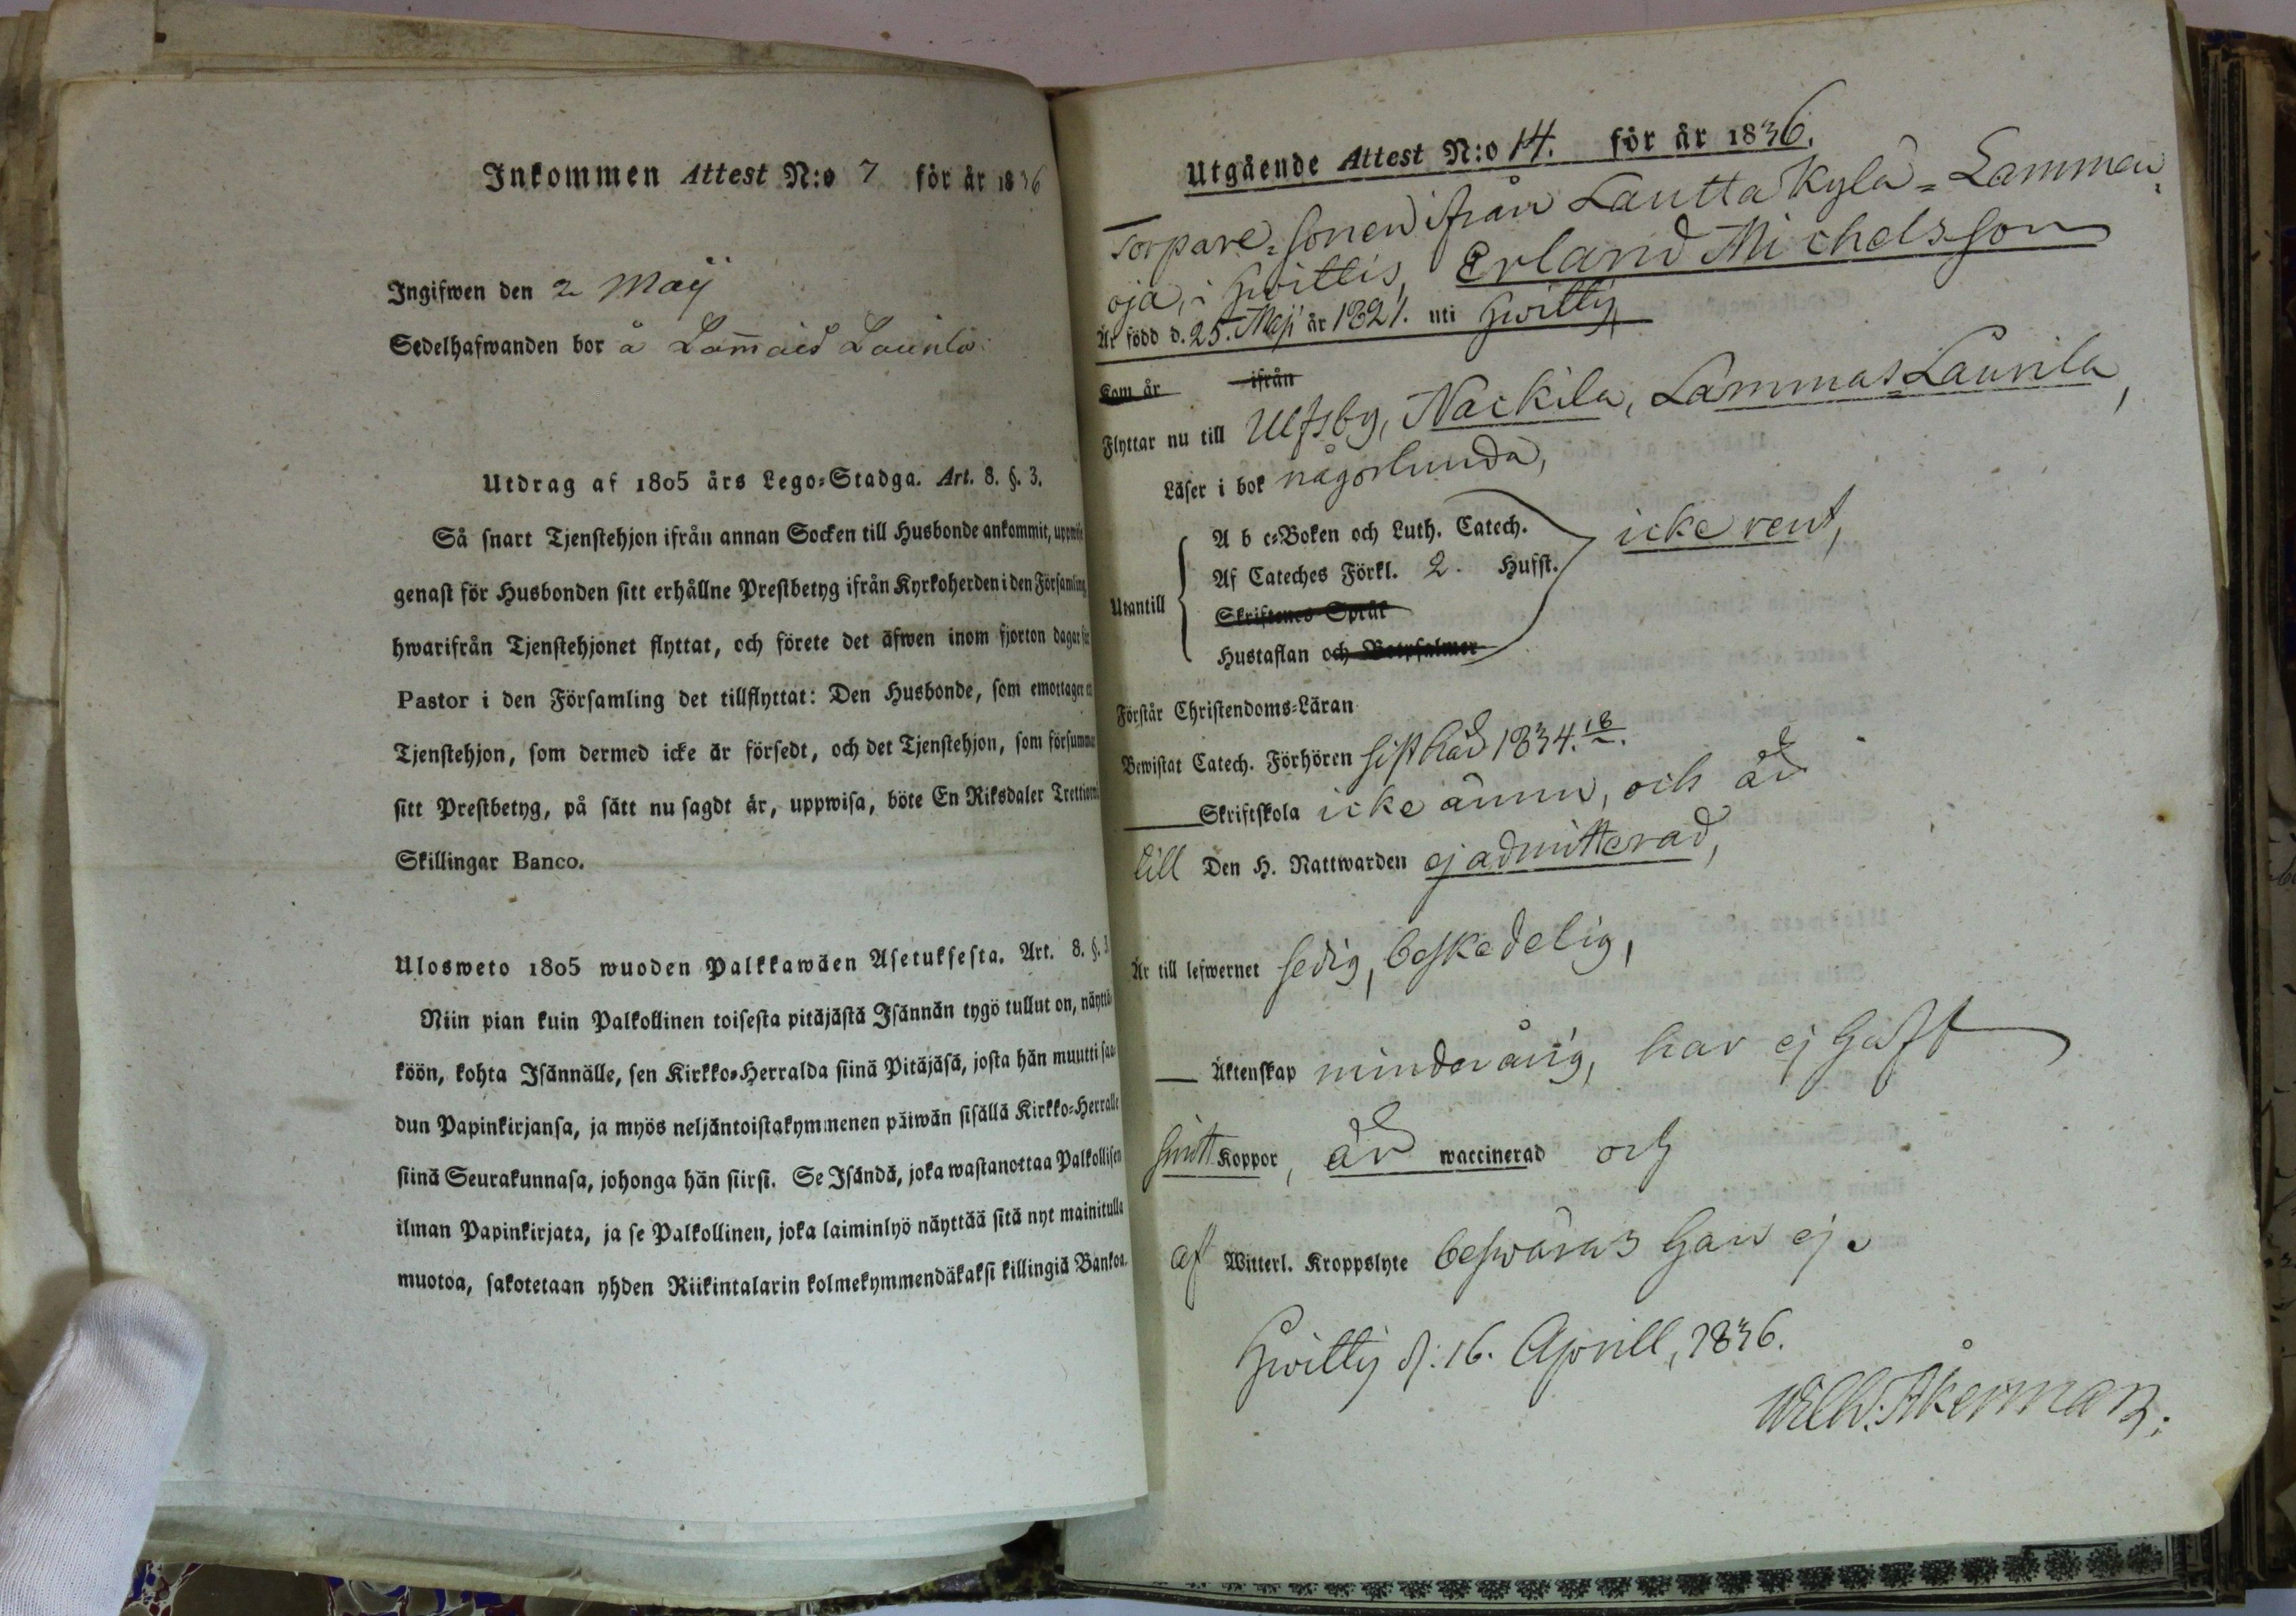 Inkommen Attest N:o 7 för år 1836
Ingifwen den 2 Maij
Sedelhafwanden bor å Lam̄ais Launla
Utdrag af 1805 års Lego=Stadga. Art. 8. §. 3.
Så snart Tjenstehjon ifrån annan Socken till Husbonde ankommit, uppwise
genast för Husbonden sitt erhållne Prestbetyg ifrån Kyrkoherden i den Församling
hwarifrån Tjenstehjonet flyttat, och förete det äfwen inom fjorton dagar för
Pastor i den Församling det tillflyttat: Den Husbonde, som emottager
Tjenstehjon, som dermed icke är försedt, och det Tjenstehjon, som försummar
sitt Prestbetyg, på sätt nu sagdt är, uppwisa, böte En Riksdaler
Skillingar Banco.
Ulosweto 1805 wuoden Palkkawäen Asetuksesta. Art. 8. §. 3
Niin pian kuin Palkollinen toisesta pitäjästä Isännän tygö tullut on, näyttä-
köön, kohta Isännälle, sen Kirkko=Herralda siinä Pitäjäsä, josta hän muutti saa-
dun Papinkirjansa, ja myös neljäntoistakymmenen päiwän sisällä Kirkko=Herralle
siinä Seurakunnasa, johonga hän siirsi. Se Isändä, joka wastanottaa Palkollisen
ilman Papinkirjata, ja se Palkollinen, joka laiminlyö näyttää sitä nyt mainitulla
muotoa, sakotetaan yhden Riikintalarin kolmekymmendäkaksi killingiä Bankoa.
Utgående Attest N:o 14. för år 1836.
Torpare=sonen ifrån Lautta Kylä=Lammen
oja, i Hwittis, Erland Michelsson
Är född d. 25. Maji år 1821. uti Hwittis,
Kom år ifrån
Flyttar nu till Ulfsby, Nackila, Lammas=Launila,
Läser i bok någorlunda,
Utantill
A b c=Boken och Luth. Catech.
Af Cateches Förkl. 2. Hufst.
Skriftenes Språk
Hustaflan och Botpsalmer
icke rent,
Förstår Christendoms=Läran
Bewistat Catech. Förhören sisthåd 1834.
Skriftskola icke ännu, och är
till Den H. Nattwarden ej admitterad,
Är till lefwernet sedig, beskedelig,
Äktenskap minderårig, har ej haft
Smitt Koppor, är waccinerad och
af Witterl. Kroppslyte beswäras han ej.
Hwittis d: 16. Aprill, 1836.
Wilh. Åkerman.